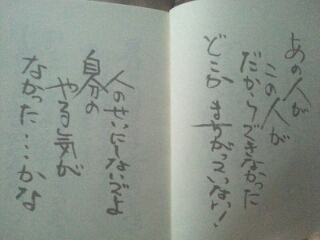 あの人が
この人が
だからできなかった
どこかまちがっていない!
人のせいにしないでよ
自分の
やる気が
なかった…かな